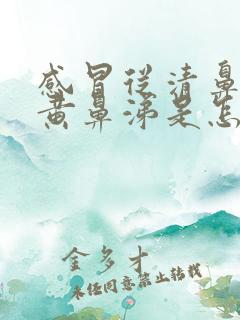 感冒从清鼻
黄鼻涕是怎
金多才
未经同意禁止转载